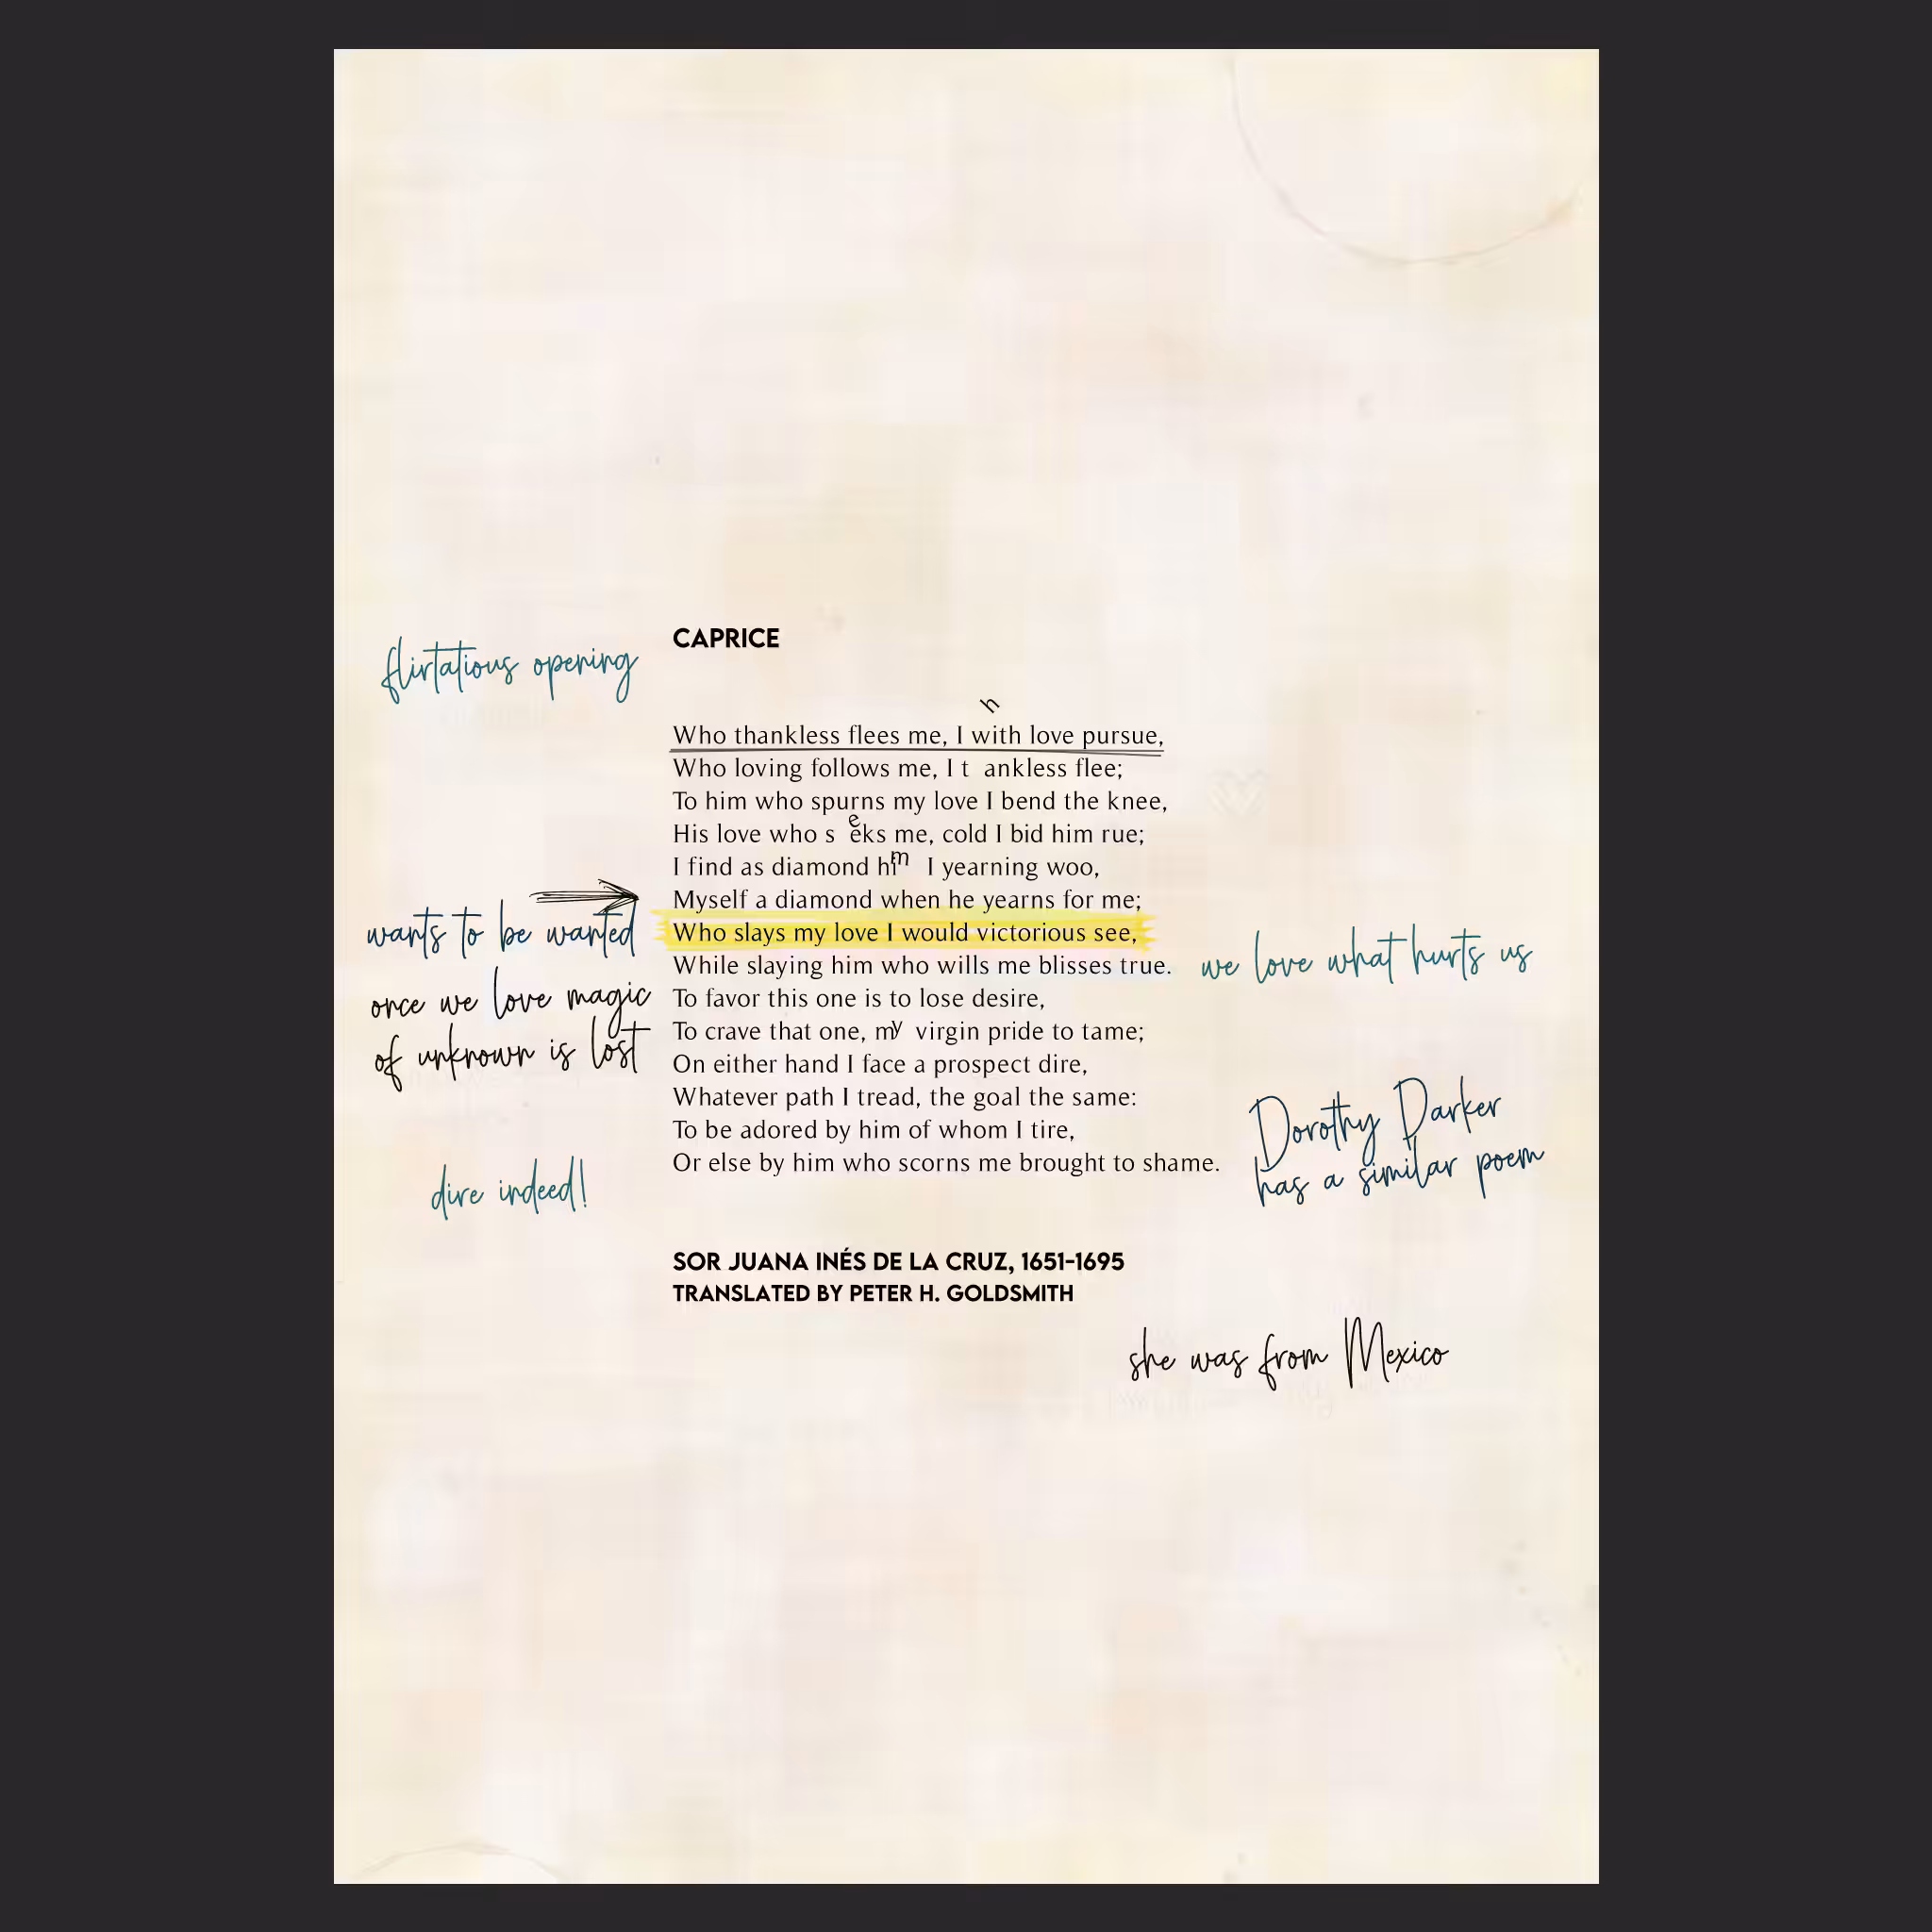 CAPRICE
flirtatious opening
Who thankless flees me, I with love pursue,
Who loving follows me, I thankless flee;
To him who spurns my love I bend the knee,
His love who seeks me, cold I bid him rue;
I find as diamond him I yearning woo,
Myself a diamond when he yearns for me;
wants to be wanted
Who slays my love I would victorious see,
we love what hurts us
While slaying him who wills me blisses true.
once we love magic
of unknown is lost
To favor this one is to lose desire,
To crave that one, my virgin pride to tame;
On either hand I face a prospect dire,
Whatever path I tread, the goal the same:
To be adored by him of whom I tire,
Or else by him who scorns me brought to shame.
Dorothy Parker
has a similar poem
dire indeed!
SOR JUANA INÉS DE LA CRUZ, 1651-1695
TRANSLATED BY PETER H. GOLDSMITH
she was from Mexico